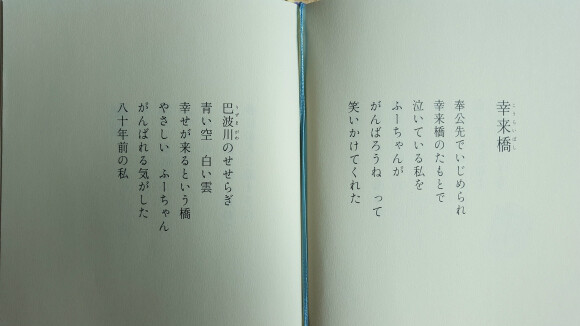 幸来橋
奉公先でいじめられ
幸来橋のたもとで
泣いている私を
ふーちゃんが
がんばろうね　って
笑いかけてくれた
巴波川のせせらぎ
青い空　白い雲
幸せが来るという橋
やさしい　ふーちゃん
がんばれる気がした
八十年前の私